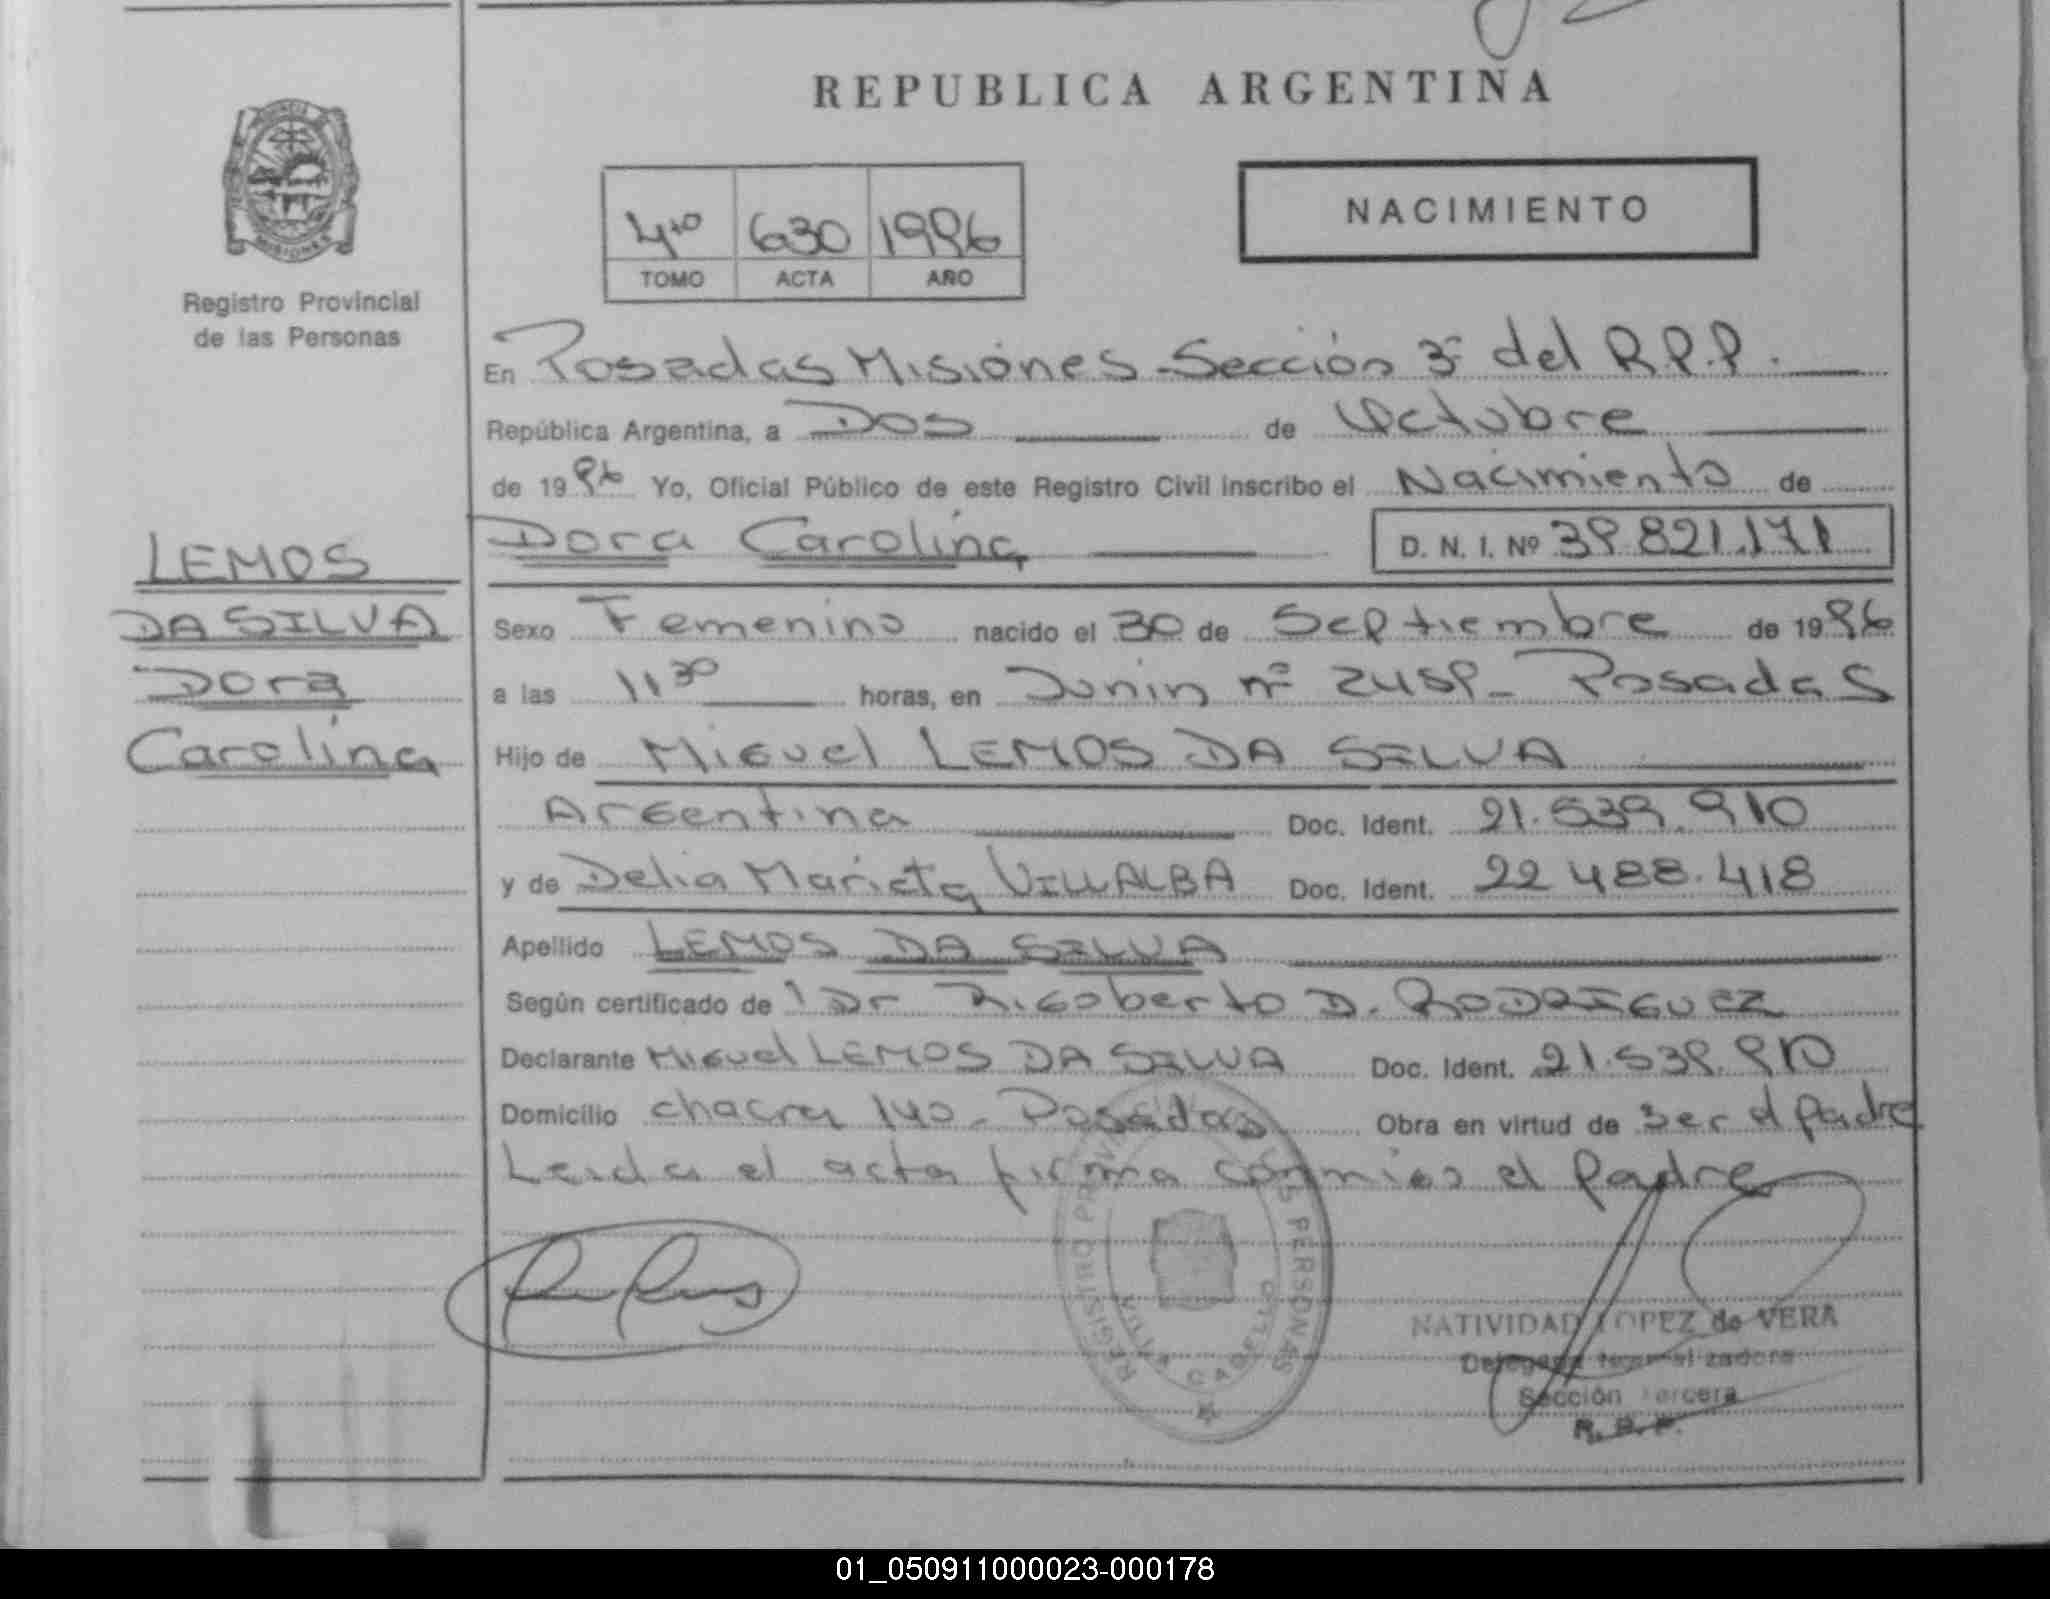 REPUBLICA ARGENTINA
MISIONES
Registro Provincial
de las Personas
4to 630 1996
TOMO ACTA AÑO
NACIMIENTO
En Posadas Misiones - Sección 3ª del R.P.P.
República Argentina, a Dos de Octubre
de 1996 Yo, Oficial Público de este Registro Civil inscribo el Nacimiento de
Dora Carolina D. N. I. Nº 39.821.171
LEMOS
DA SILVA
Dora
Carolina
Sexo Femenino nacido el 30 de Septiembre de 1996
a las 11 30 horas, en Junin nº 2459 - Posadas
Hijo de Miguel LEMOS DA SILVA
Argentina Doc. Ident. 21.539.910
y de Delia Marieta VILLALBA Doc. Ident. 22.488.418
Apellido LEMOS DA SILVA
Según certificado de Dr Rigoberto D. RODRIGUEZ
Declarante Miguel LEMOS DA SILVA Doc. Ident. 21.539.910
Domicilio chacra 140 - Posadas Obra en virtud de ser el padre
Leida el acta firma conmigo el Padre
REGISTRO PERSONAS
CABELLO
NATIVIDAD LOPEZ de VERA
Sección Tercera
01_050911000023-000178